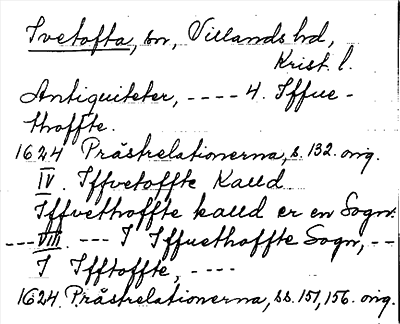 Ivetofta, sn, Villands hd,
Krist. l.
Antiquiteter, ---- 4. Iffue-
thoffte.
1624 Prästrelationerna, s. 132. orig.
IV. Iffvetoffte Kalld
Iffvethoffte kalld er en Sogn.
--- VIII. --- I Iffuethoffte Sogn, --
I Ifftoffte, ----
1624. Prästrelationerna, ss. 151, 156. orig.